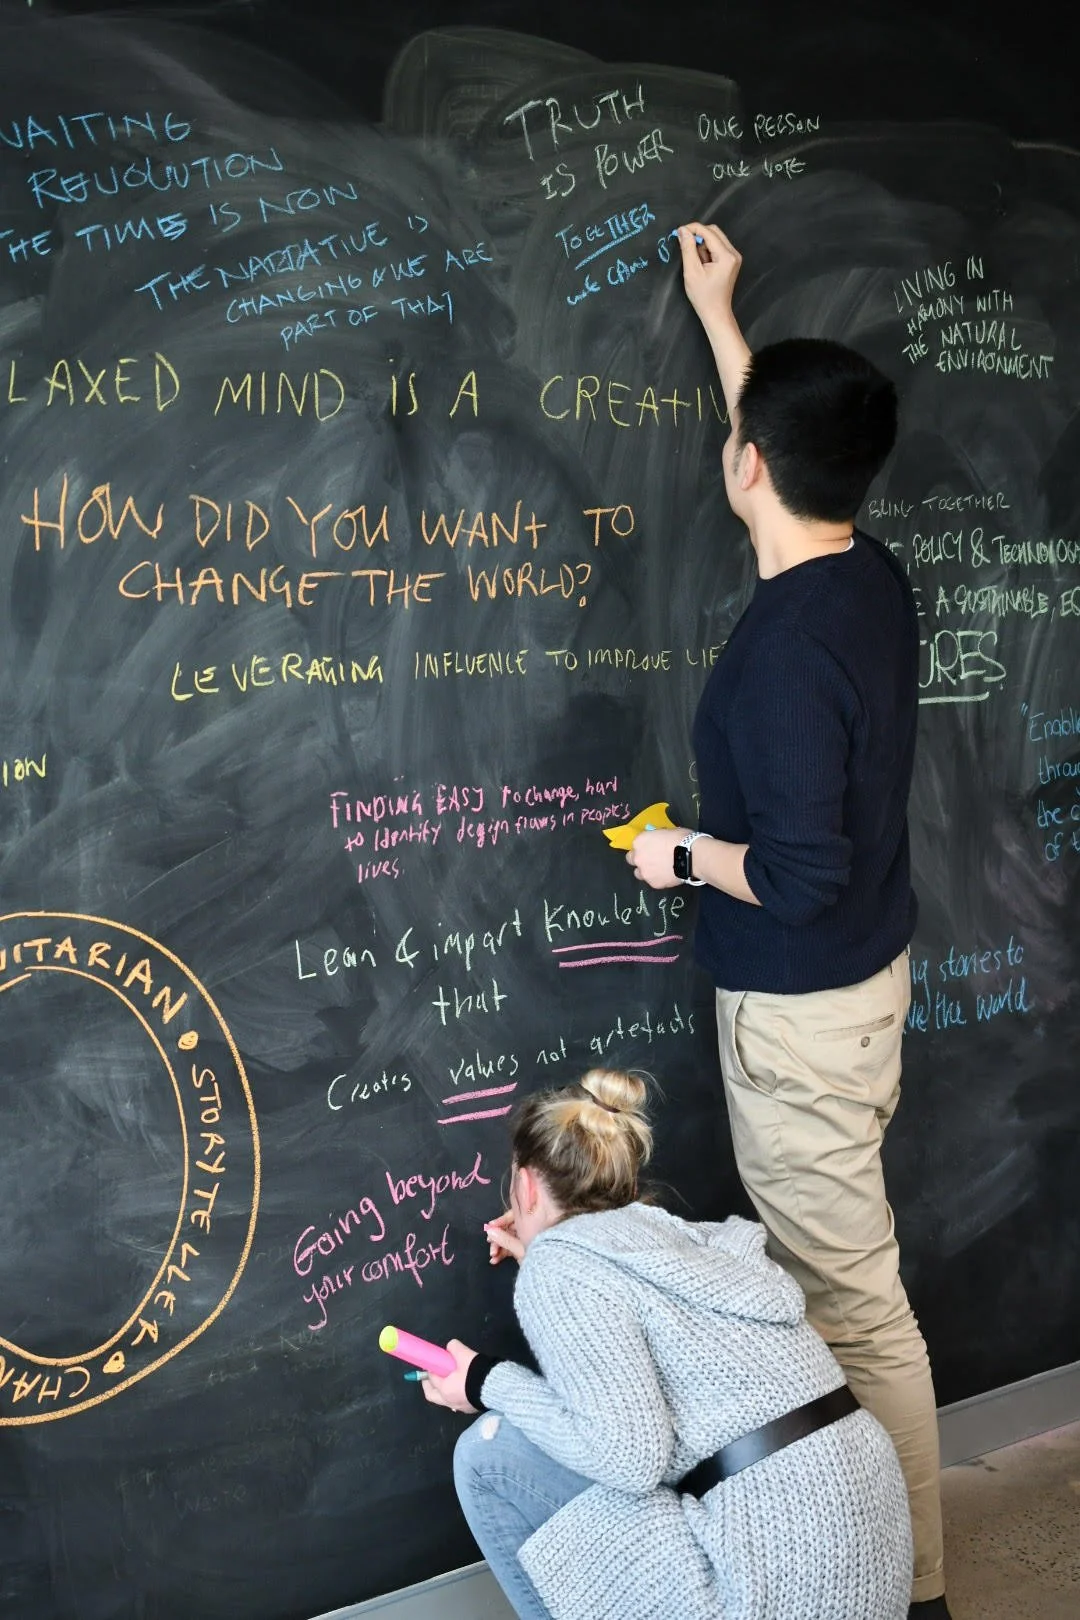 WAITING
REVOLUTION
THE TIMES IS NOW
THE NARRATIVE IS
CHANGING & WE ARE
PART OF THAT
TRUTH
IS POWER
ONE PERSON
ONE VOTE
TOGETHER
we CAN B
LIVING IN
HARMONY WITH
THE NATURAL
ENVIRONMENT
LAXED MIND IS A CREATIV
HOW DID YOU WANT TO
CHANGE THE WORLD?
BRING TOGETHER
POLICY & TECHNOLOG
A SUSTAINABLE,
URES
LEVERAGING INFLUENCE TO IMPROVE LIFE
"Enable
throug
the
of
ION
FINDING EASY to change, hard
to identify design flaws in people's
lives.
Lean & impart Knowledge
that
Creates values not artefacts
stories to
the world
ITARIAN • STORYTELLER • CHA
Going beyond
your comfort